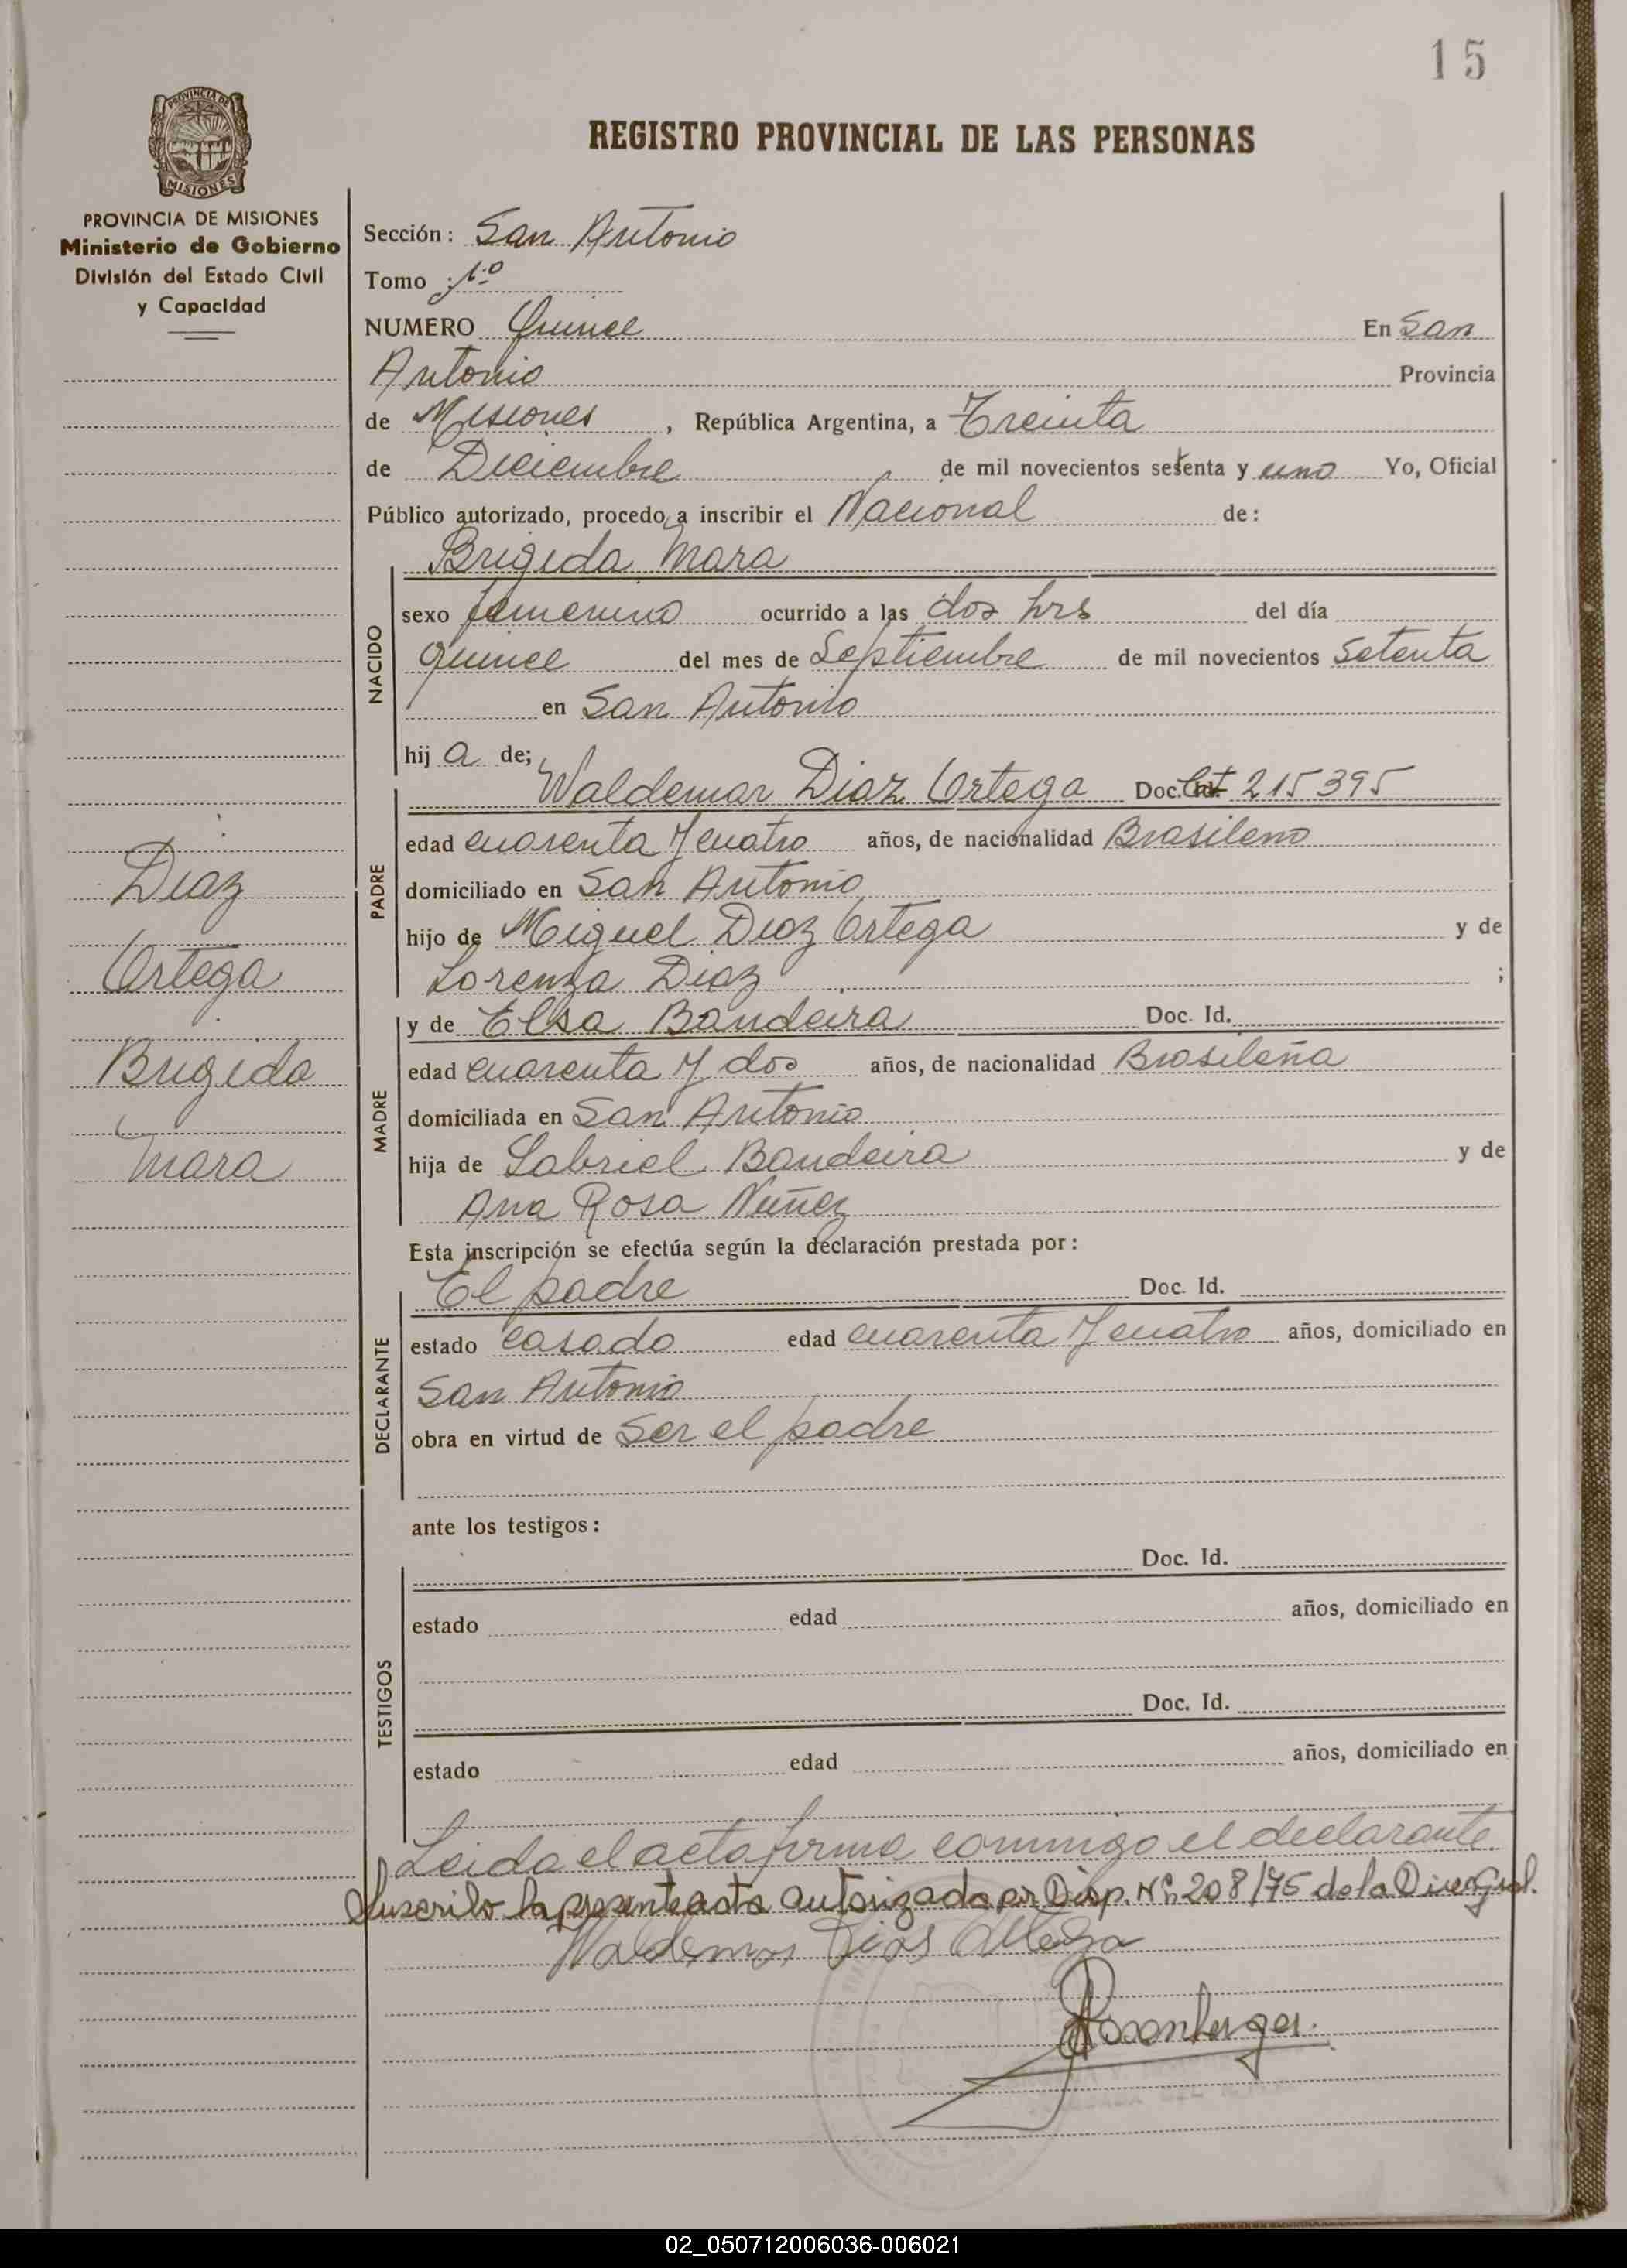 15
PROVINCIA DE
MISIONES
REGISTRO PROVINCIAL DE LAS PERSONAS
PROVINCIA DE MISIONES
Ministerio de Gobierno
División del Estado Civil
y Capacidad
Sección: San Antonio
Tomo 1º
NUMERO Quince En San
Antonio Provincia
de Misiones, República Argentina, a Treinta
de Diciembre de mil novecientos setenta y uno Yo, Oficial
Público autorizado, procedo a inscribir el Nacional de:
Brigida Mara
NACIDO
sexo femenino ocurrido a las dos hrs del día
quince del mes de Septiembre de mil novecientos Setenta
en San Antonio
hija de;
Waldemar Diaz Ortega Doc. 215395
PADRE
edad cuarenta y cuatro años, de nacionalidad Brasileno
domiciliado en San Antonio
hijo de Miguel Diaz Ortega y de
Lorenza Diaz ;
y de Elsa Bandeira Doc. Id.
MADRE
edad cuarenta y dos años, de nacionalidad Brasileña
domiciliada en San Antonio
hija de Gabriel Bandeira y de
Ana Rosa Nuñez
Diaz
Ortega
Brigida
Mara
Esta inscripción se efectúa según la declaración prestada por:
El padre Doc. Id.
DECLARANTE
estado casado edad cuarenta y cuatro años, domiciliado en
San Antonio
obra en virtud de Ser el padre
ante los testigos:
Doc. Id.
TESTIGOS
estado edad años, domiciliado en
Doc. Id.
estado edad años, domiciliado en
Leida el acta firma conmigo el declarante
Suscribo la presente acta autorizada por Disp. Nº 208/75 de la Direc. Gral.
Waldemar Dias Ortega
Rosenberger
02_050712006036-006021